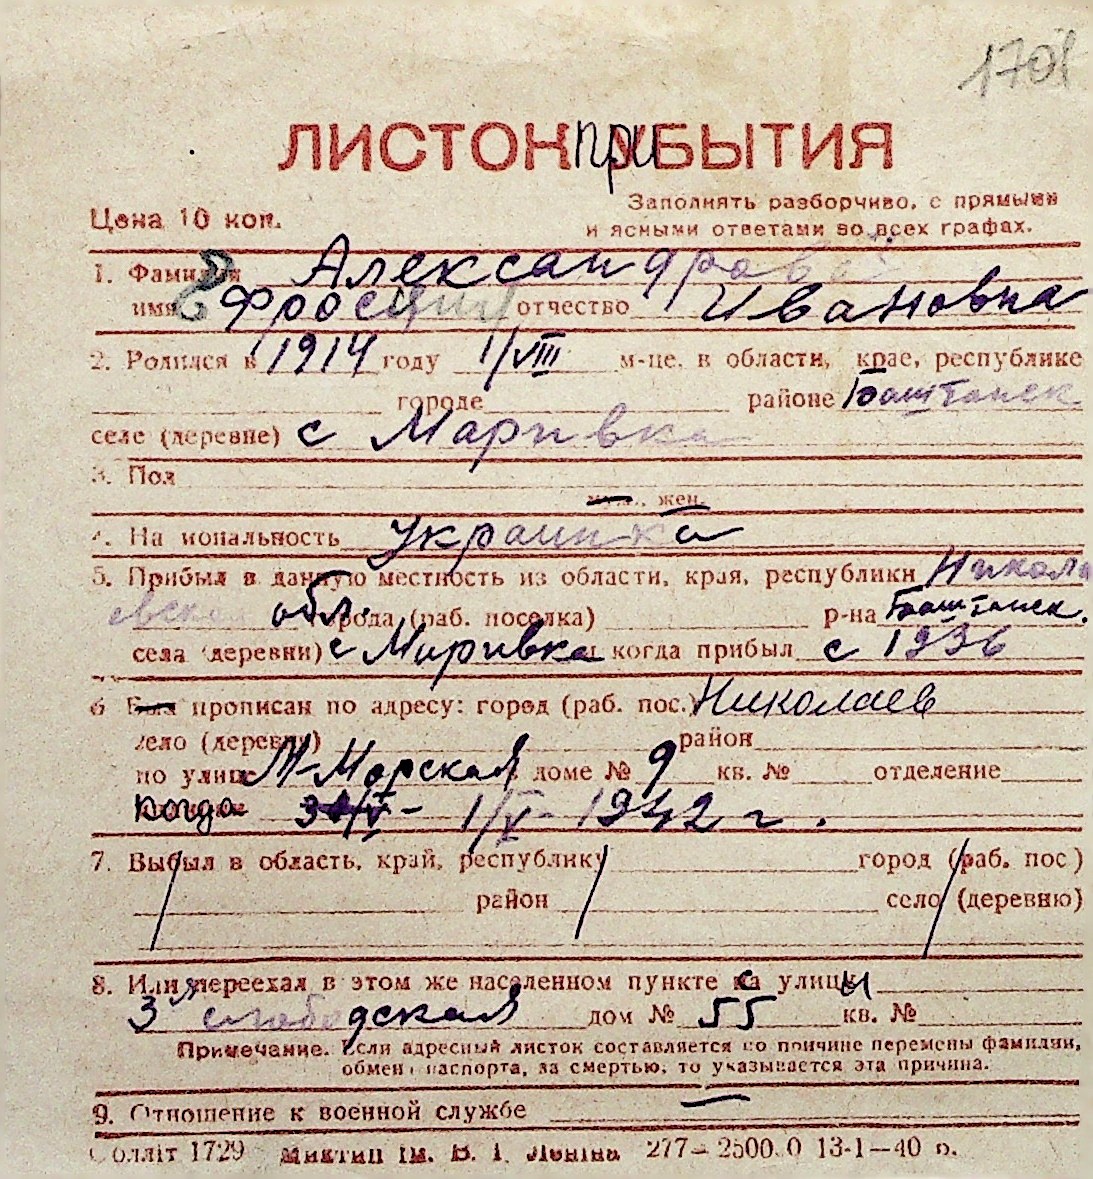 1701
ЛИСТОК ПРИБЫТИЯ
Цена 10 коп.
Заполнять разборчиво, с прямыми
и ясными ответами во всех графах.
1. Фамилия Александрова
имя Ефросиния отчество Ивановна
2. Родился в 1914 году 1/VIII м-це, в области, крае, республике
городе районе Баштанск
селе (деревне) с Маривка
3. Пол
муж., жен.
4. Национальность Украинка
5. Прибыл в данную местность из области, края, республики Никола
евской обл. города (раб. поселка) р-на Баштанск.
села (деревни) с Маривка и когда прибыл с 1936
6 Был прописан по адресу: город (раб. пос.) Николаев
село (деревня) район
по улице М-Морская доме № 9 кв. № отделение
когда 1/V - 1942 г.
7. Выбыл в область, край, республику город (раб. пос.)
район село (деревню)
8. Или переехал в этом же населенном пункте с улицы
3я слободская дом № 55 кв. №
Примечание. Если адресный листок составляется по причине перемены фамилии,
обмена паспорта, за смертью, то указывается эта причина.
9. Отношение к военной службе —
Обллiт 1729 Миктип iм. В. I. Ленiна 277—2500.0 13-1—40 р.